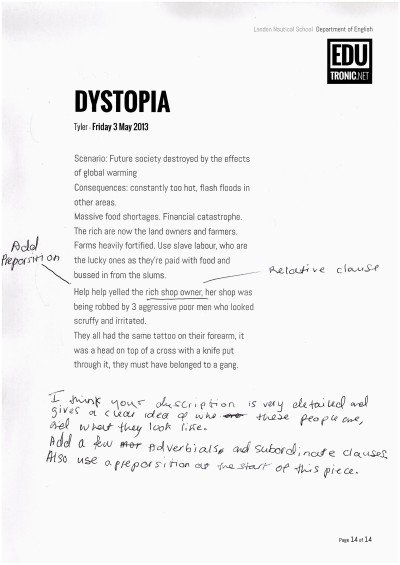 London Nautical School Department of English
EDU
TRONIC.NET
DYSTOPIA
Tyler - Friday 3 May 2013
Scenario: Future society destroyed by the effects
of global warming
Consequences: constantly too hot, flash floods in
other areas.
Massive food shortages. Financial catastrophe.
The rich are now the land owners and farmers.
Farms heavily fortified. Use slave labour, who are
the lucky ones as they're paid with food and
bussed in from the slums.
Add
Preporsition
Relative clause
Help help yelled the rich shop owner, her shop was
being robbed by 3 aggressive poor men who looked
scruffy and irritated.
They all had the same tattoo on their forearm, it
was a head on top of a cross with a knife put
through it, they must have belonged to a gang.
I think your description is very detailed and
gives a clear idea of who these people are,
and what they look like.
Add a few Adverbials and subordinate clauses.
Also use a preporsition at the start of this piece.
Page 14 of 14